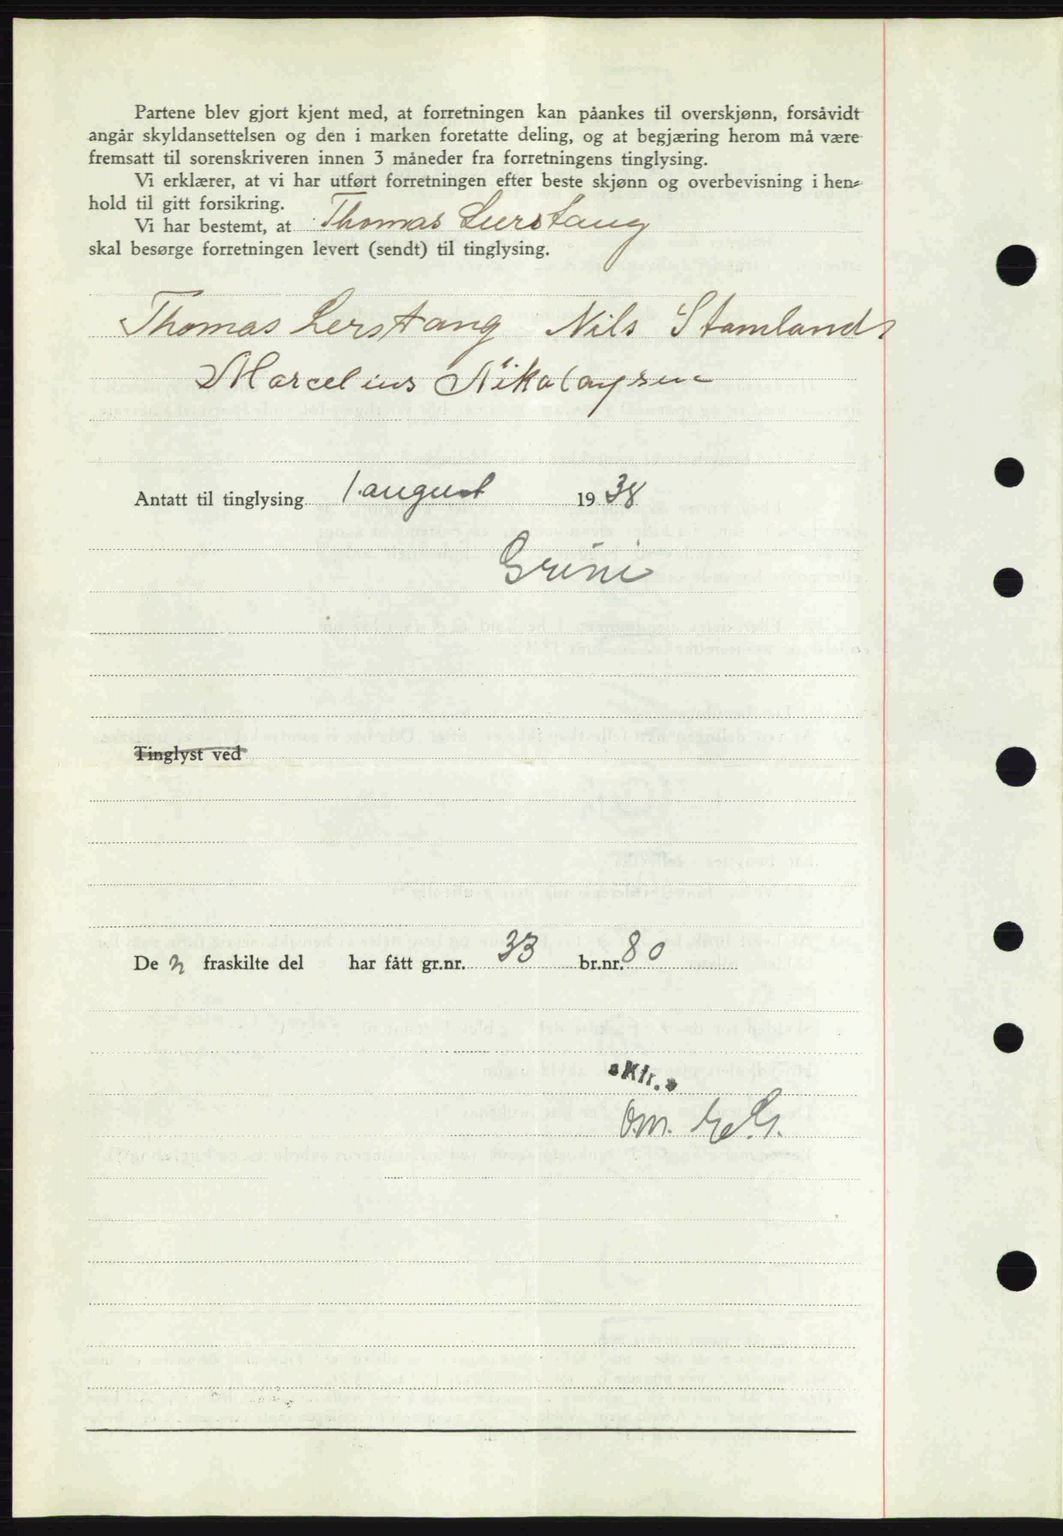 Partene blev gjort kjent med, at forretningen kan påankes til overskjønn, forsåvidt
angår skyldansettelsen og den i marken foretatte deling, og at begjæring herom må være
fremsatt til sorenskriveren innen 3 måneder fra forretningens tinglysing.
Vi erklærer, at vi har utført forretningen efter beste skjønn og overbevisning i hen-
hold til gitt forsikring.
Vi har bestemt, at Thomas Lerstang
skal besørge forretningen levert (sendt) til tinglysing.
Thomas Lerstang Nils Stamland
Marcelius Nikolaysen
Antatt til tinglysing 1. august 1938
Grini
Tinglyst ved
De n fraskilte del har fått gr.nr. 33 br.nr. 80
Kfr.